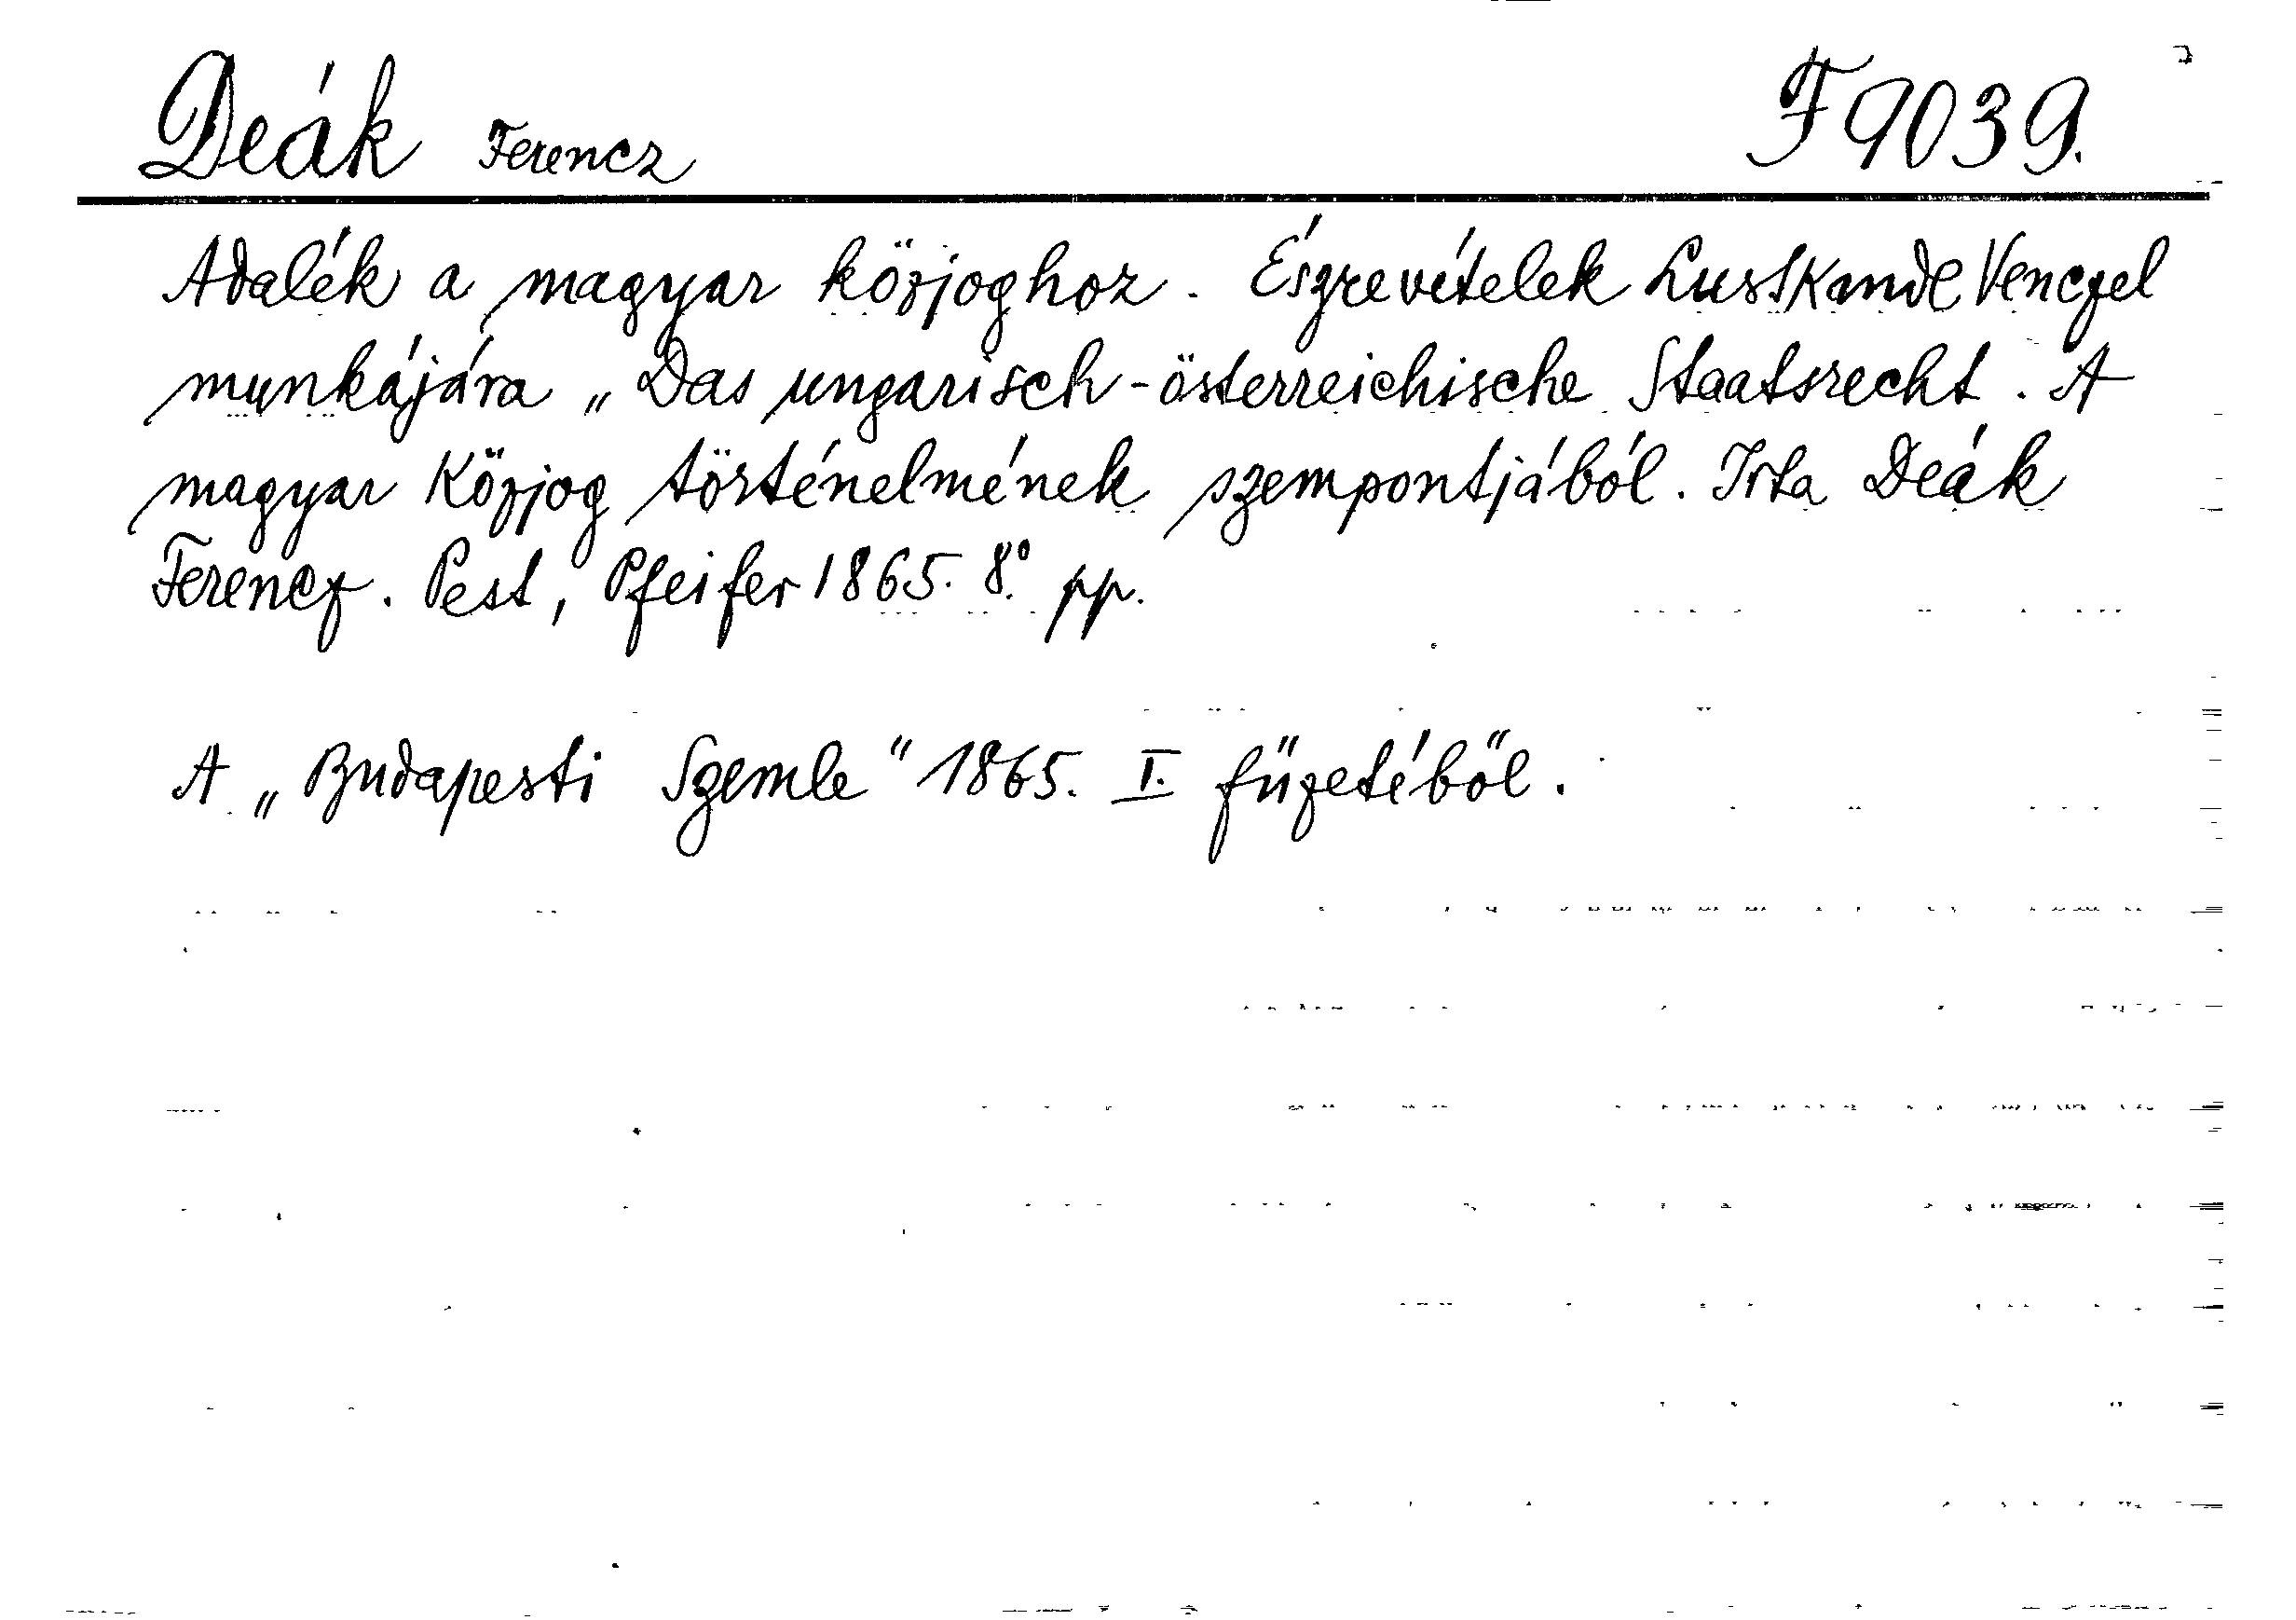 Deák Ferencz F 9039.
Adalék a magyar közjoghoz. Észrevételek Lustkandl Venczel
munkájára „Das ungarisch-österreichische Staatsrecht. A
magyar közjog történelmének szempontjából. Irta Deák
Ferencz. Pest, Pfeifer 1865. 8.° pp.
A „Budapesti Szemle" 1865. I. füzetéből.